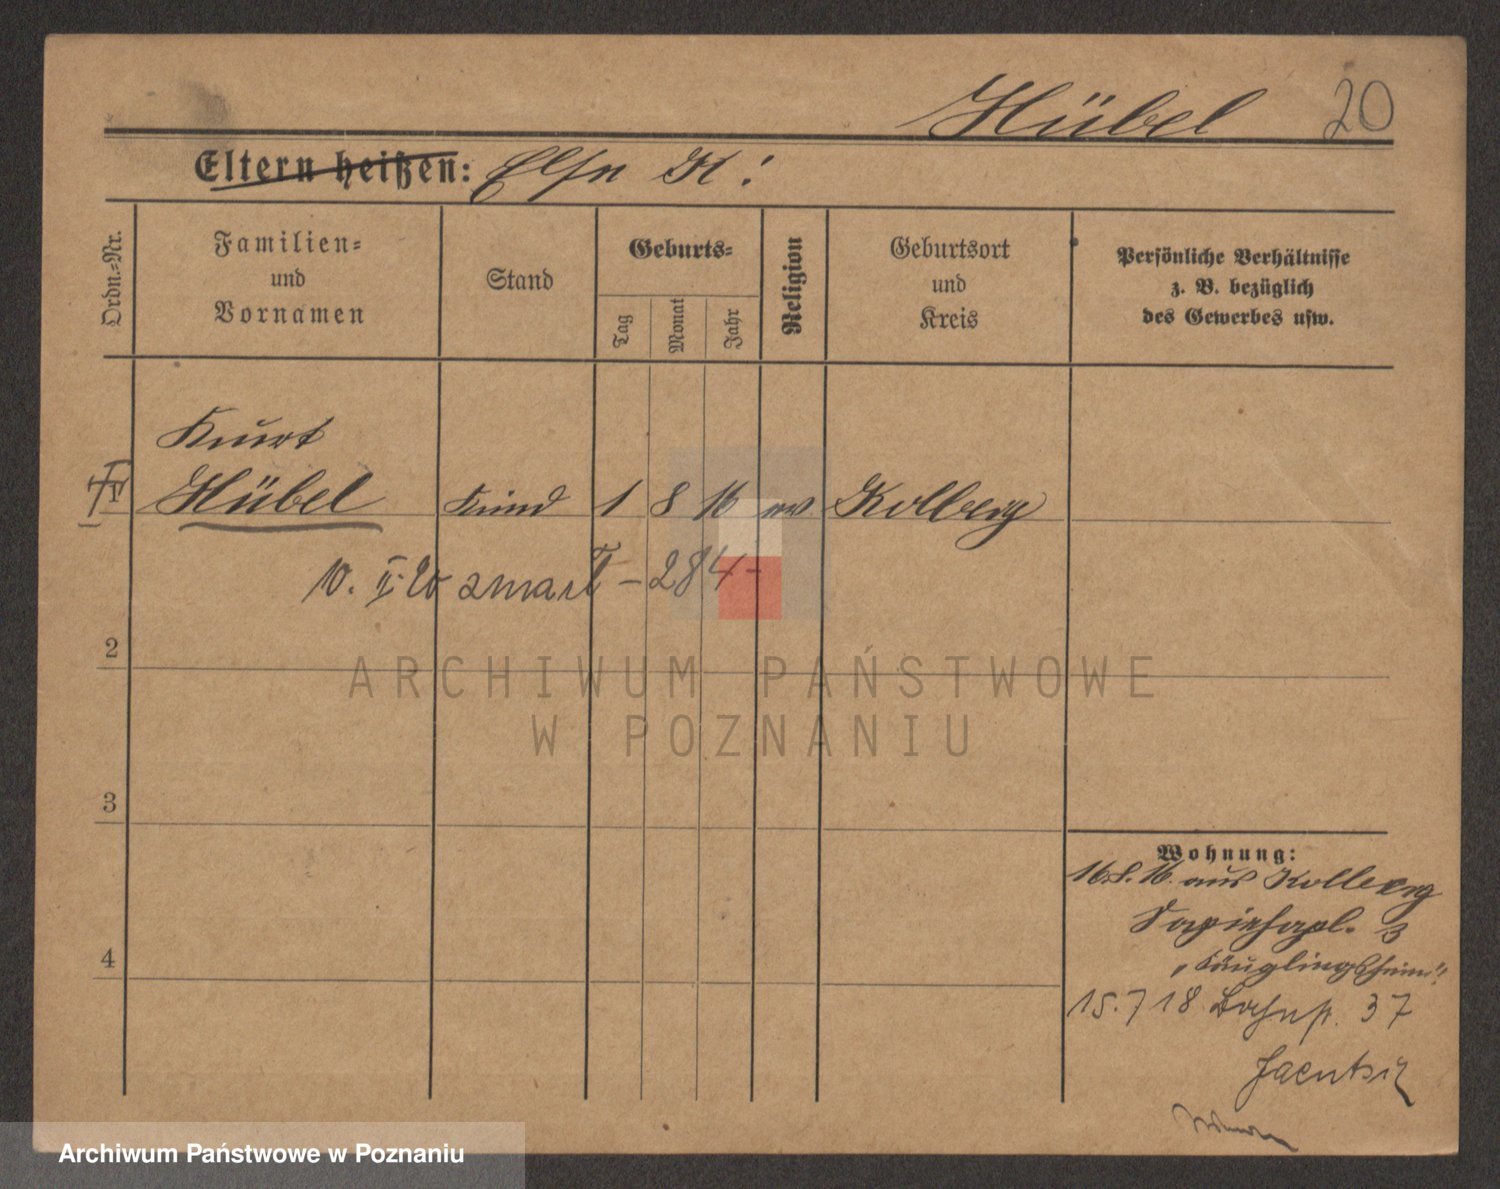 Hübel 20
Eltern heißen: Else H.
Ordn.-Nr.
Familien-
und
Vornamen
Stand
Geburts-
Tag
Monat
Jahr
Religion
Geburtsort
und
Kreis
Persönliche Verhältnisse
z. B. bezüglich
des Gewerbes usw.
Kurt
1 Hübel Kind 1 8 16 ev Kolberg
10. II. 20 zmarł - 284 -
2
3
4
Wohnung:
16.8.16. aus Kolberg
Sapiehapl. 3
„Säuglingsheim"
15.7 18 Bahnst. 37
ARCHIWUM PAŃSTWOWE
W POZNANIU
Archiwum Państwowe w Poznaniu